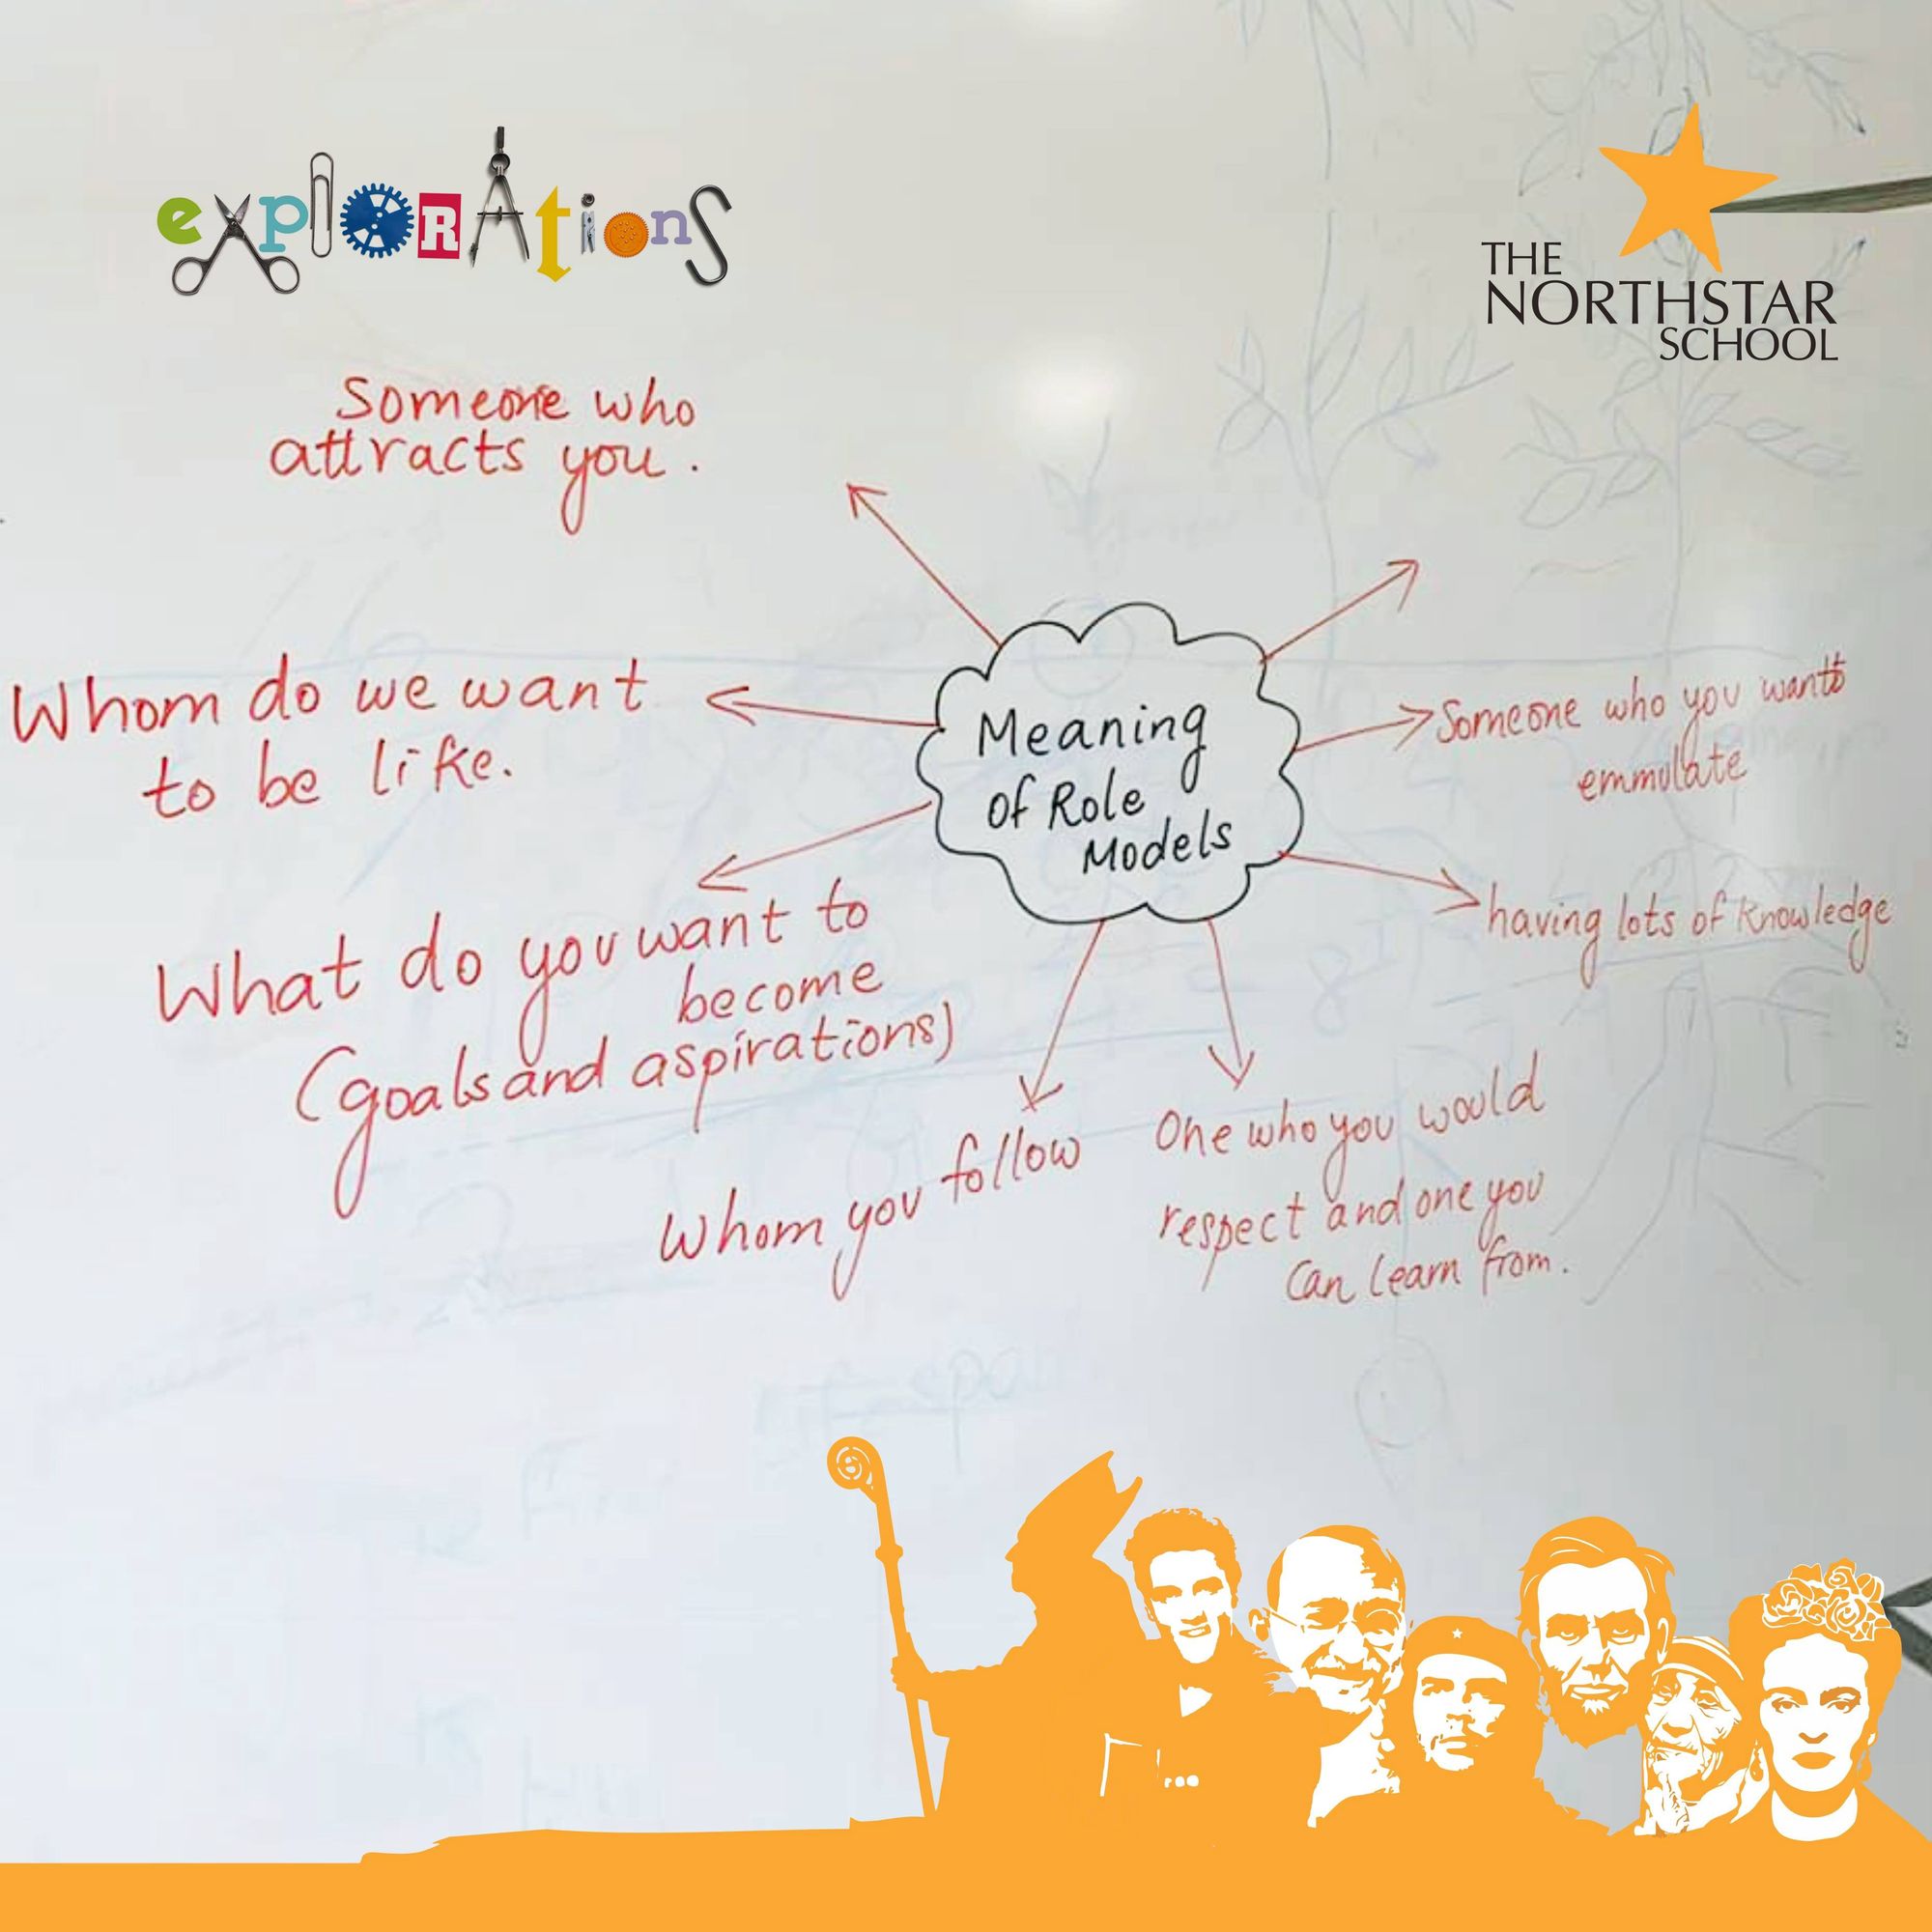 explorations
THE
NORTHSTAR
SCHOOL
Someone who
attracts you.
Whom do we want
to be like.
Meaning
of Role
Models
Someone who you wants
emmulate
What do you want to
become
(goals and aspirations)
having lots of knowledge
Whom you follow
One who you would
respect and one you
can learn from.